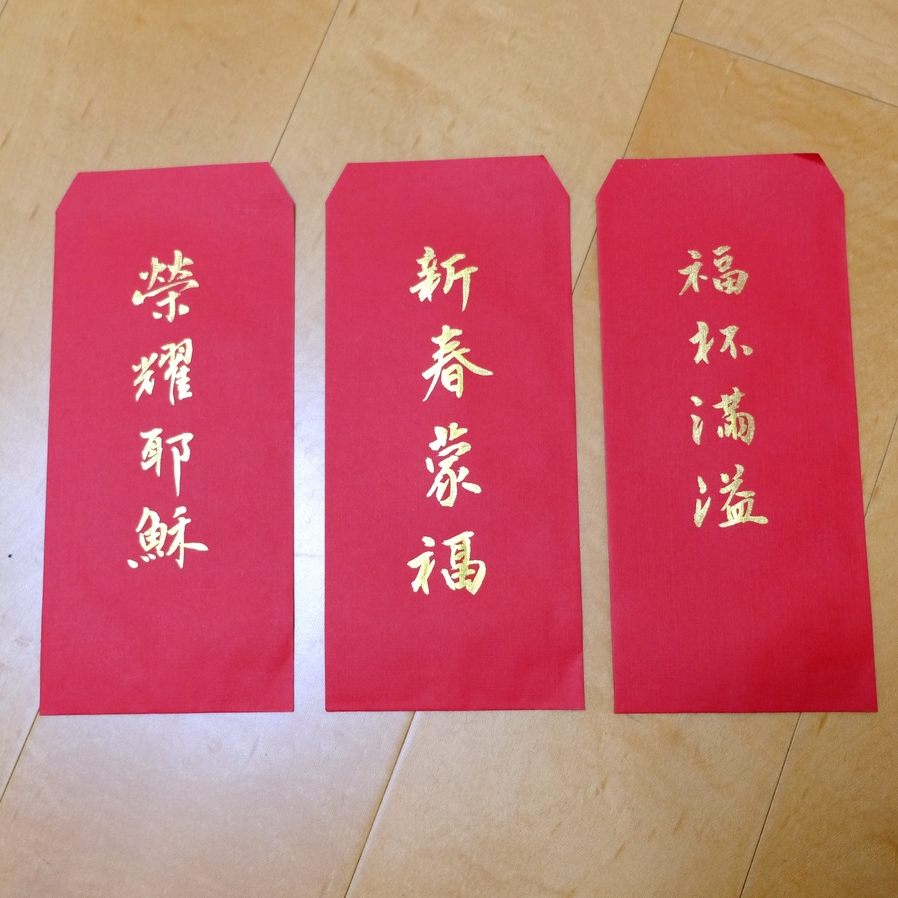 榮耀耶穌
新春蒙福
福杯滿溢